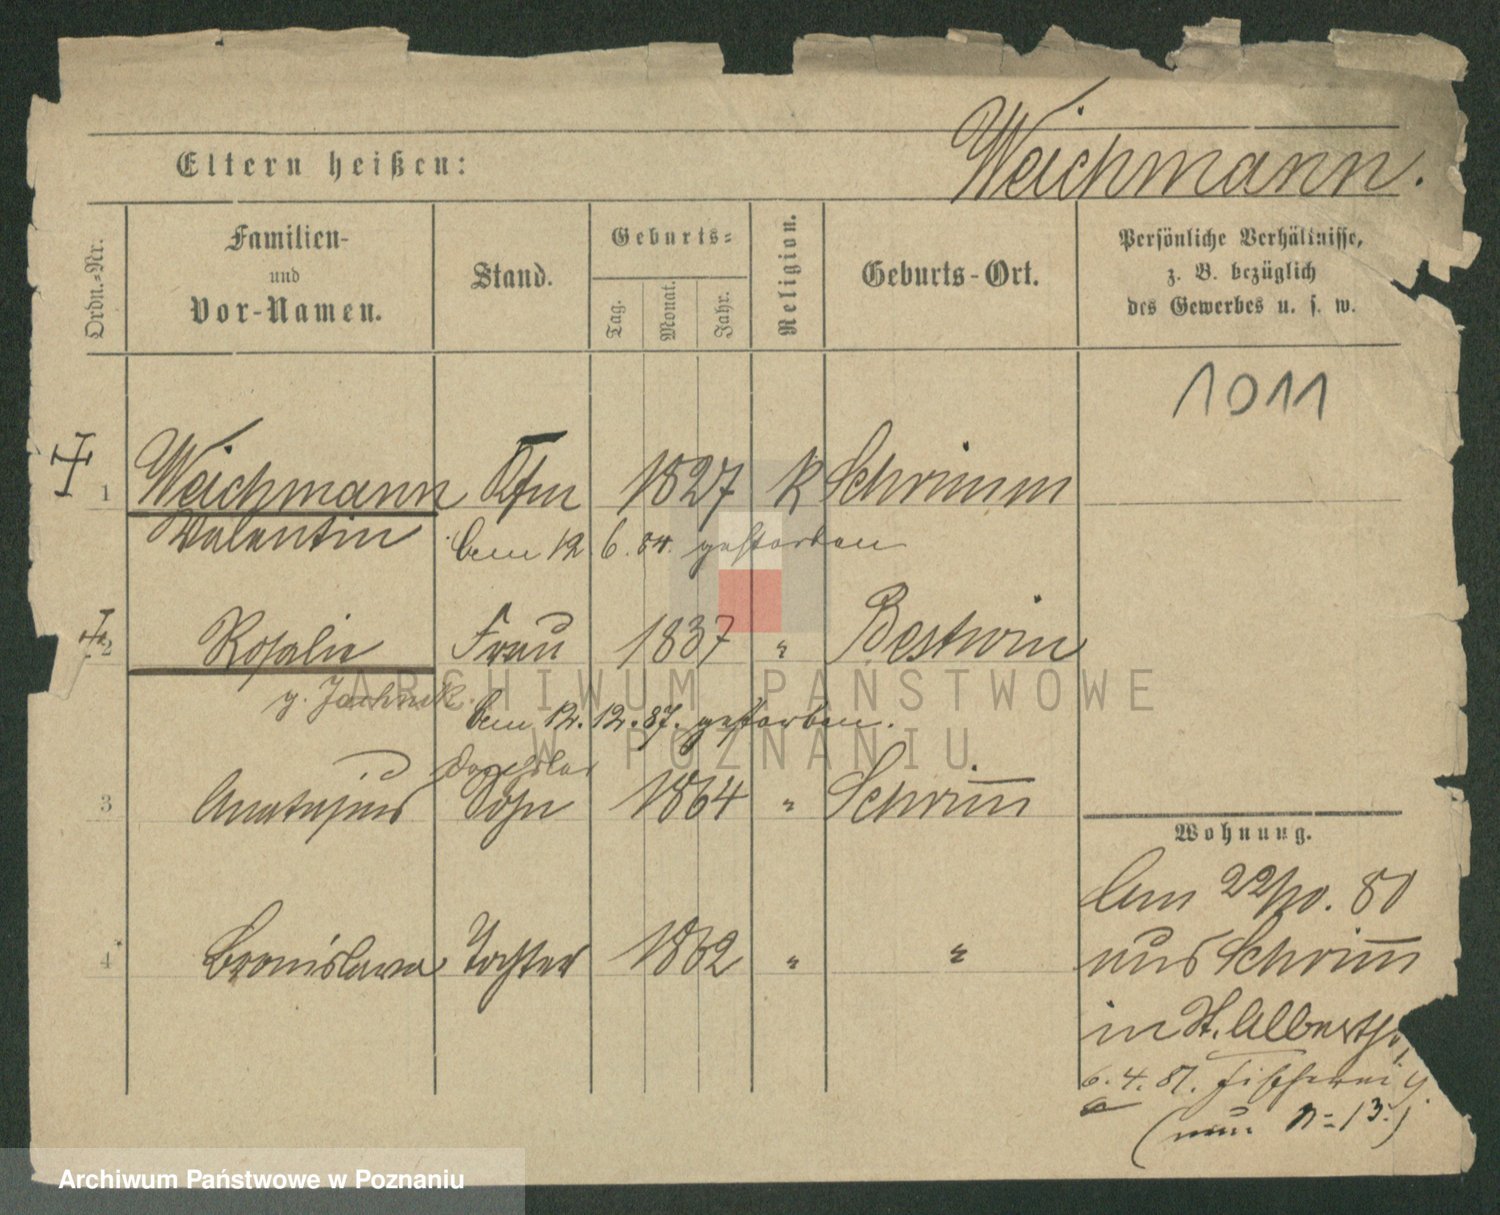 Weichmann.
Eltern heißen:
Ordn.-Nr.
Familien-
und
Vor-Namen.
Stand.
Geburts-
Tag.
Monat.
Jahr.
Religion.
Geburts-Ort.
Persönliche Verhältnisse,
z. B. bezüglich
des Gewerbes u. s. w.
1011
1 Weichmann Kfm 1827 k Schrimm
Valentin
am 12 6. 84. gestorben
2 Rosalie Frau 1837 " Bestwin
g. Jachnik
am 12. 12. 87. gestorben.
3 Anastasius Sohn 1864 " Schrim̅
4 Bronislawa Tochter 1862 " "
Wohnung.
Am 22/10. 80
aus Schrim̅
in St. Alberts
6. 4. 81. Fischerei 4.
(neu n=13.)
ARCHIWUM PAŃSTWOWE
W POZNANIU
Archiwum Państwowe w Poznaniu